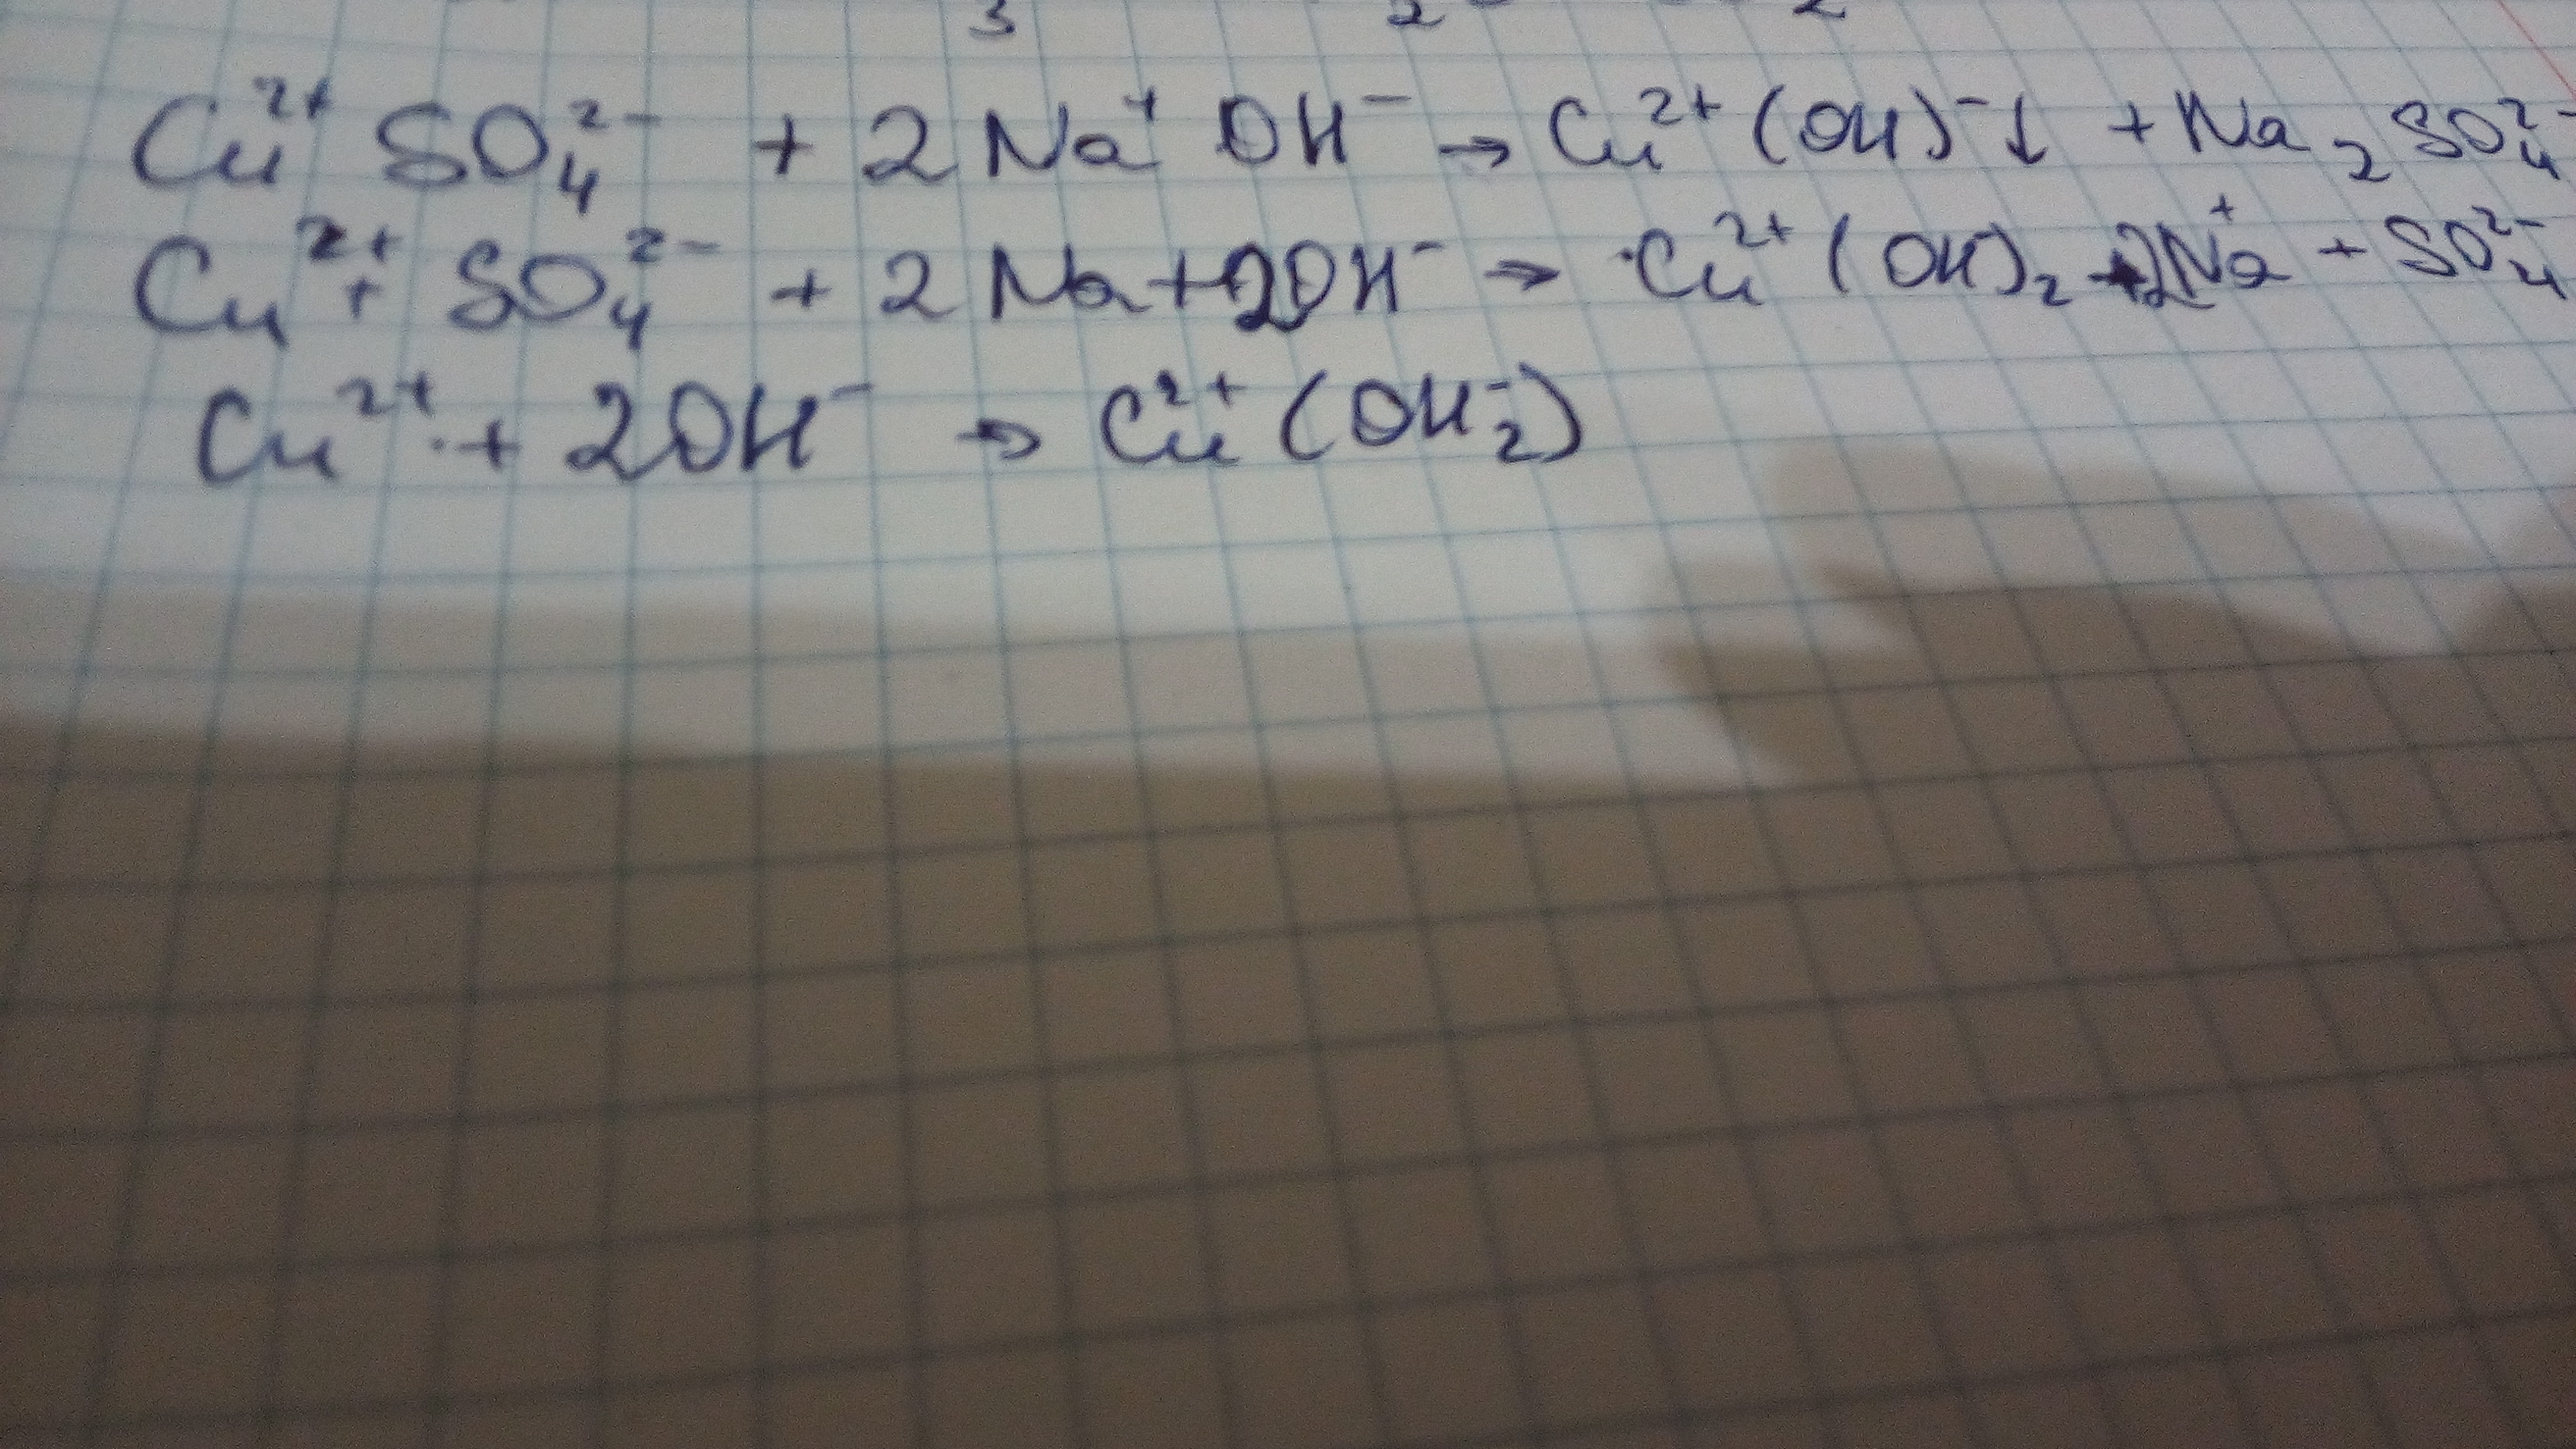 3 2 2
Cu²⁺ SO₄²⁻ + 2 Na⁺ OH⁻ → Cu²⁺ (OH)⁻↓ + Na₂ SO₄²⁻
Cu²⁺ + SO₄²⁻ + 2 Na + 2OH⁻ → Cu²⁺ (OH⁻)₂ + 2Na⁺ + SO₄²⁻
Cu²⁺ + 2OH⁻ → Cu²⁺ (OH₂⁻)